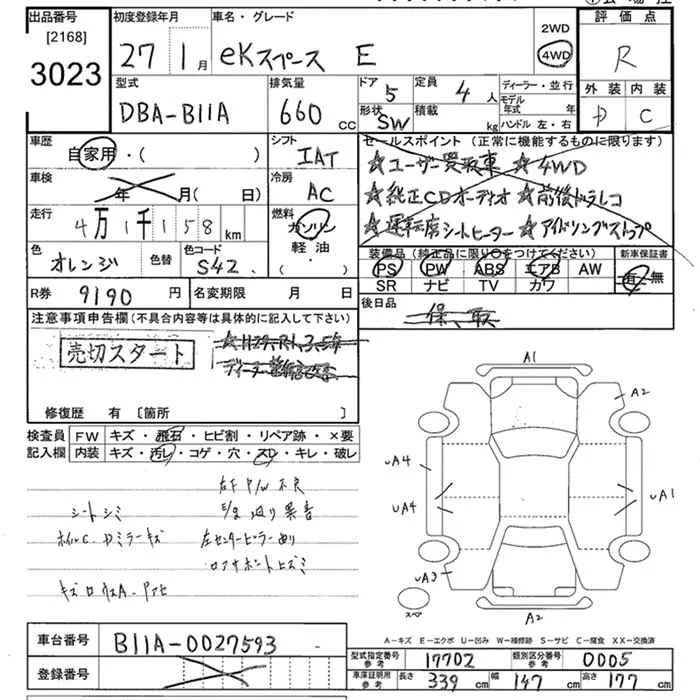 出品番号
[2168]
3023
初度登録年月
27 1月
車名・グレード
eKスペース E
2WD
4WD
評価点
R
型式
DBA-B11A
排気量
660 CC
ドア
5
定員
4人
形状
SW
積載
kg
ディーラー・並行
モデル年式 年
ハンドル 左・右
外装 内装
C
車歴
自家用・( )
シフト
IAT
セールスポイント(正常に機能するものに限ります)
☆ユーザー買取車 ☆4WD
☆純正CDオーディオ ☆前後ドラレコ
☆運転席シートヒーター ☆アイドリングストップ
車検
年 月( 日)
冷房
AC
走行
4万1千158km
燃料
ガソリン
軽油・
・
色
オレンジ
色替
色コード
S42
装備品(純正品に限り○をつけてください)
PS PW ABS エアB AW
SR ナビ TV カワ
新車保証書
有・無
R券 9190円
名変期限 月 日
後日品
保、取
注意事項申告欄(不具合内容等は具体的に記入して下さい)
売切スタート
修復歴 有 [箇所 ]
検査員記入欄
FW キズ・飛石・ヒビ割・リペア跡・×要
内装 キズ・汚レ・コゲ・穴・スレ・キレ・破レ
右F P/W 不良
シートシミ
A1
A2
UA4
UA4
UA1
UA3
スペア
A2
A-キズ E-エクボ U-凹み W-補修跡 S-サビ C-腐食 XX-交換済
車台番号
B11A-0027593
登録番号
型式指定番号
参考
17702
類別区分番号
参考
0005
車庫証明用
参考
長さ 339cm 幅 147cm 高さ 177cm